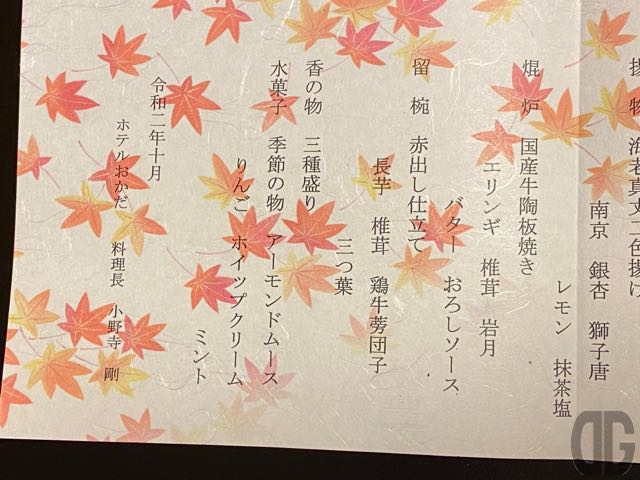 揚物 海老真丈二色揚げ
南京 銀杏 獅子唐
レモン 抹茶塩
焜炉 国産牛陶板焼き
エリンギ 椎茸 岩月
バター おろしソース
留椀 赤出し仕立て
長芋 椎茸 鶏牛蒡団子
三つ葉
香の物 三種盛り
水菓子 季節の物 アーモンドムース
りんご ホイップクリーム
ミント
令和二年十月
ホテルおかだ 料理長 小野寺 剛
DG